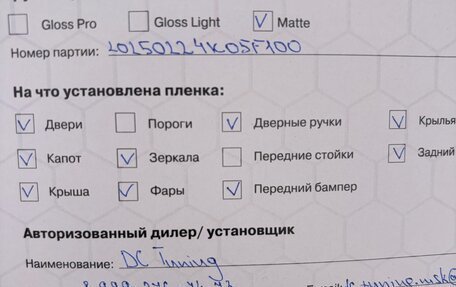 Gloss Pro Gloss Light Matte
Номер партии: 20250224K05F100
На что установлена пленка:
Двери Пороги Дверные ручки Крылья
Капот Зеркала Передние стойки Задний
Крыша Фары Передний бампер
Авторизованный дилер/ установщик
Наименование: DC Tuning